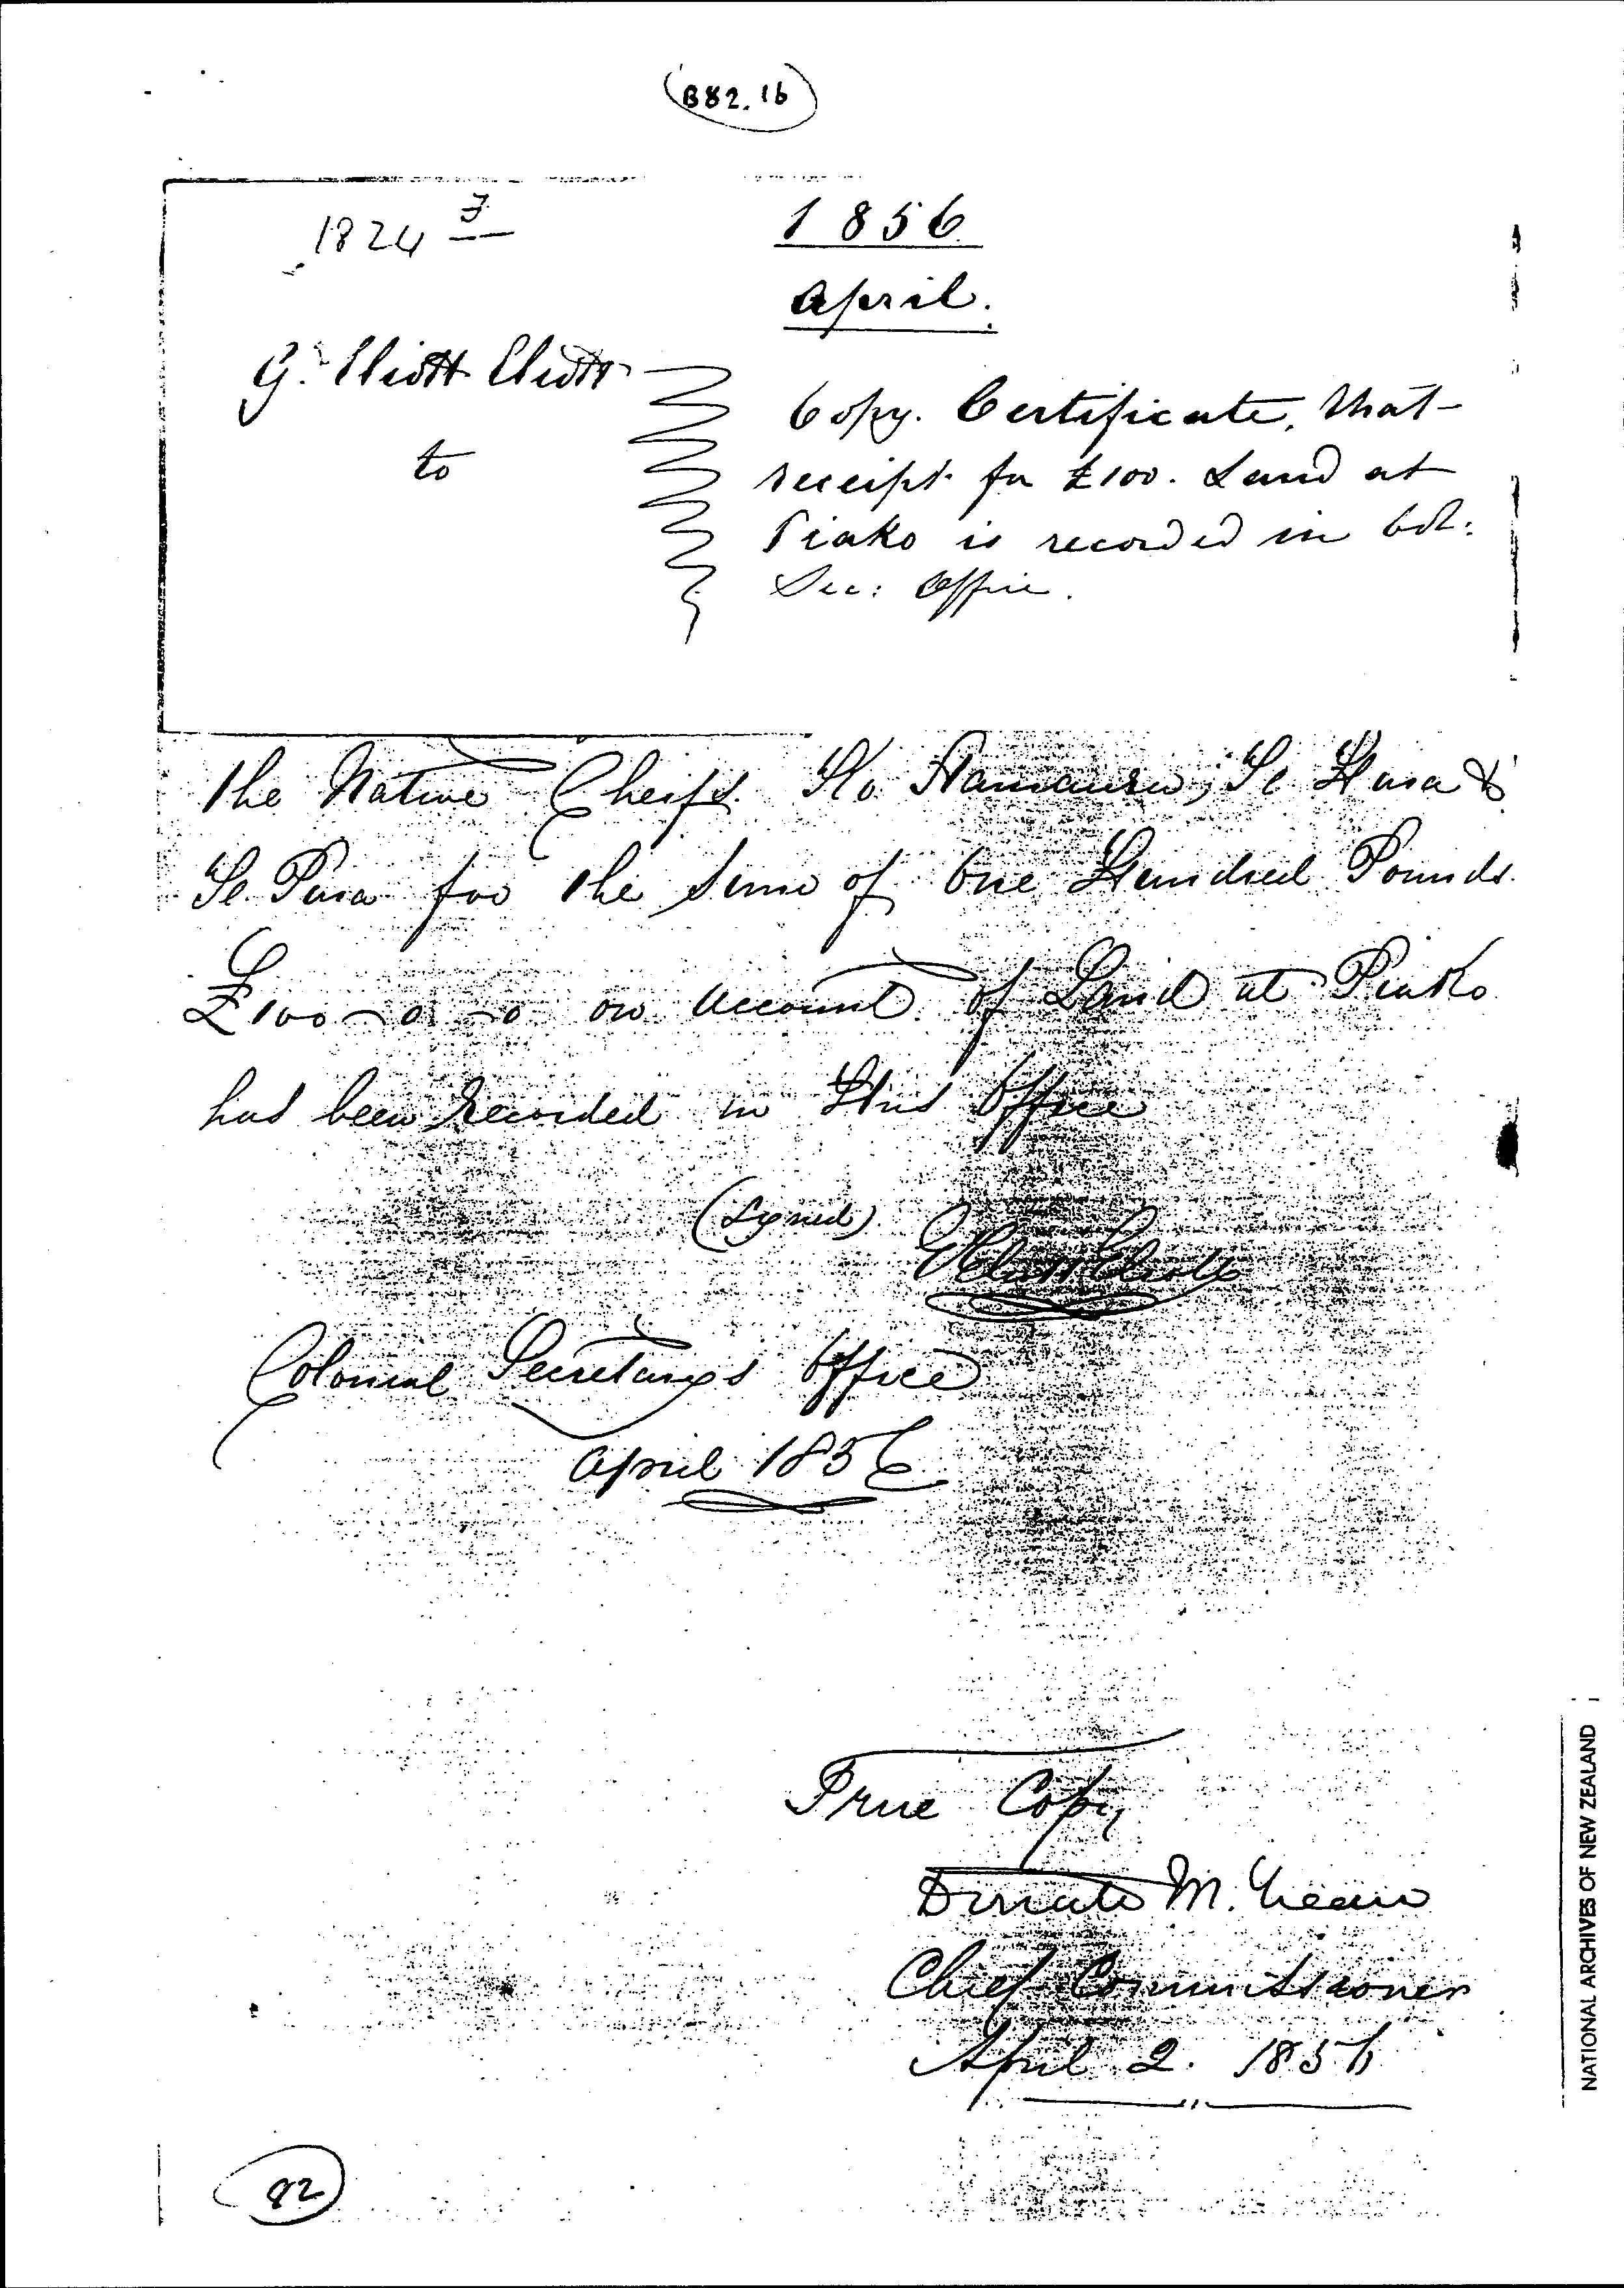 B82.16
1824
1856
April.
G. Eliott Eliott
to
Copy. Certificate, that
receipt for £100. Land at
Piako is recorded in Col:
Sec: Office.
The Native Cheifs Ko Te &
Te for the Sum of One Hundred Pounds.
£100-0-0 on Account of Land at Piako
has been Recorded in this Office
(Signed) G Eliott Eliott
Colonial Secretarys Office
April 1856
True Copy
Donald McLean
Chief Commissioner
April 2. 1856
82
NATIONAL ARCHIVES OF NEW ZEALAND